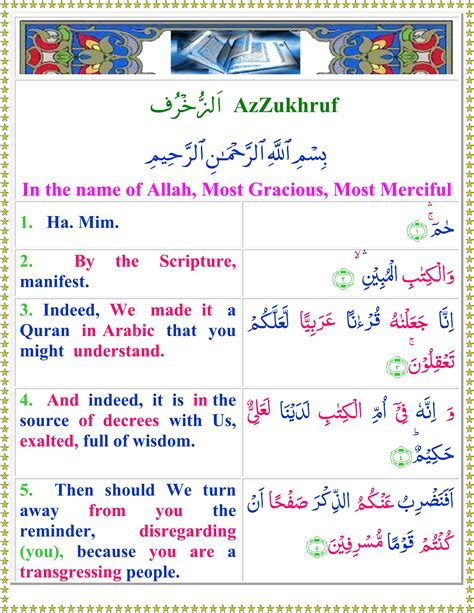 اَلزُّخْرُف AzZukhruf
بِسْمِ ٱللَّهِ ٱلرَّحْمَٰنِ ٱلرَّحِيمِ
In the name of Allah, Most Gracious, Most Merciful
1. Ha. Mim.
حٰمٓ ۚ ﴿١﴾
2. By the Scripture,
manifest.
وَالْكِتٰبِ الْمُبِيْنِ ۙ ﴿٢﴾
3. Indeed, We made it a
Quran in Arabic that you
might understand.
اِنَّا جَعَلْنٰهُ قُرْءٰنًا عَرَبِيًّا لَّعَلَّكُمْ
تَعْقِلُوْنَ ۚ ﴿٣﴾
4. And indeed, it is in the
source of decrees with Us,
exalted, full of wisdom.
وَ اِنَّهٗ فِىْۤ اُمِّ الْكِتٰبِ لَدَيْنَا لَعَلِىٌّ
حَكِيْمٌ ؕ ﴿٤﴾
5. Then should We turn
away from you the
reminder, disregarding
(you), because you are a
transgressing people.
اَفَنَضْرِبُ عَنْكُمُ الذِّكْرَ صَفْحًا اَنْ
كُنْتُمْ قَوْمًا مُّسْرِفِيْنَ ﴿٥﴾